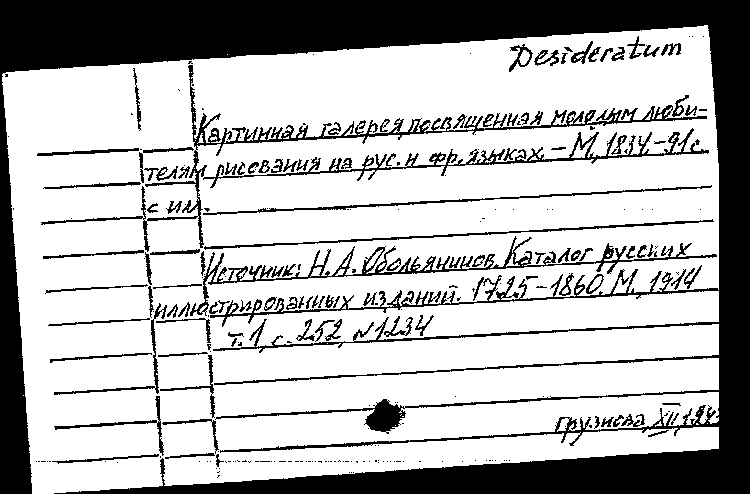 Desideratum
Картинная галерея, посвященная молодым люби-
телям рисования на рус. и фр. языках. – М., 1834. – 91 с.
с ил.
Источник: Н.А. Обольянинов. Каталог русских
иллюстрированных изданий. 1725–1860. М., 1914
т. 1, с. 252, N 1234
грузнова, XII,